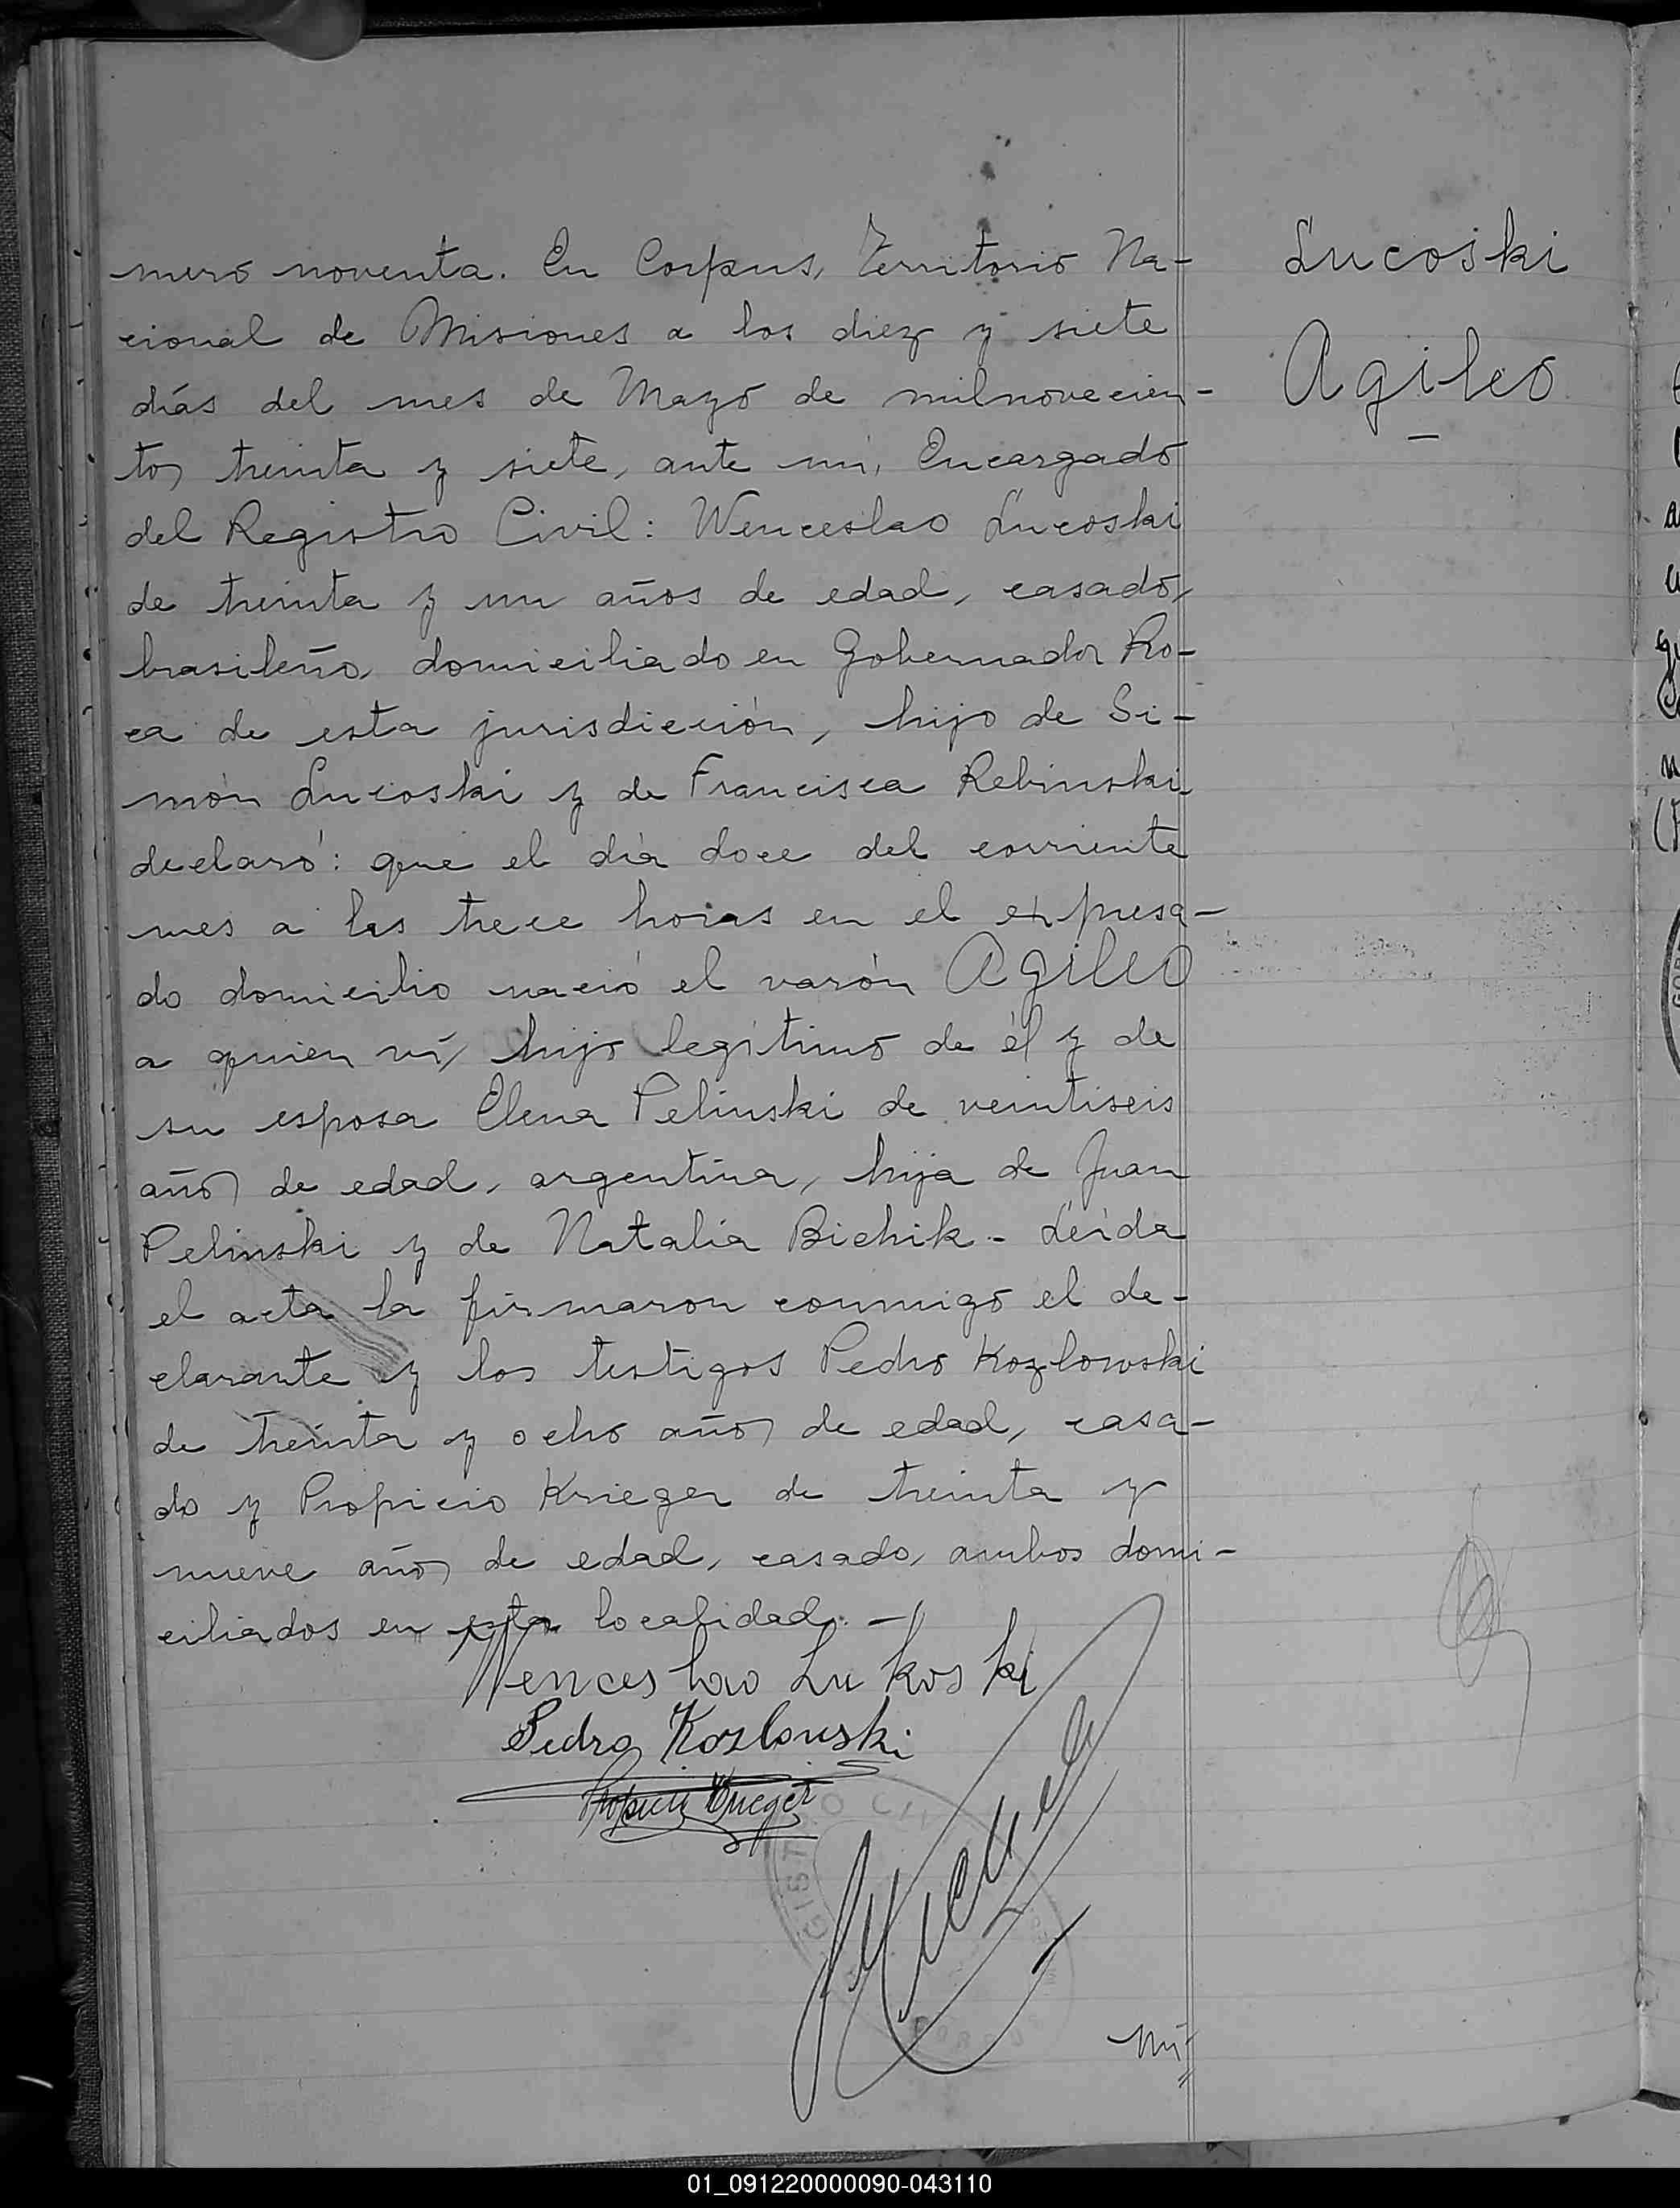 mero noventa. En Corpus, Territorio Na-
cional de Misiones a los diez y siete
días del mes de Mayo de milnovecien-
tos treinta y siete, ante mí, Encargado
del Registro Civil: Wenceslao Lucoski
de treinta y un años de edad, casado,
brasileño, domiciliado en Gobernador Ro-
ca de esta jurisdicción, hijo de Si-
món Lucoski y de Francisca Rebinski
declaró: que el día doce del corriente
mes a las trece horas en el expresa-
do domicilio nació el varón Agileo
a quien ví, hijo legítimo de él y de
su esposa Elena Pelinski de veintiseis
años de edad, argentina, hija de Juan
Pelinski y de Natalia Bichik - Leída
el acta la firmaron conmigo el de-
clarante y los testigos Pedro Kozlowski
de treinta y ocho años de edad, casa-
do y Propicio Krieger de treinta y
nueve años de edad, casado, ambos domi-
ciliados en esta localidad. -
Wenceslao Lukoski
Pedro Kozlouski
Propicio Krieger
Lucoski
Agileo
01_091220000090-043110